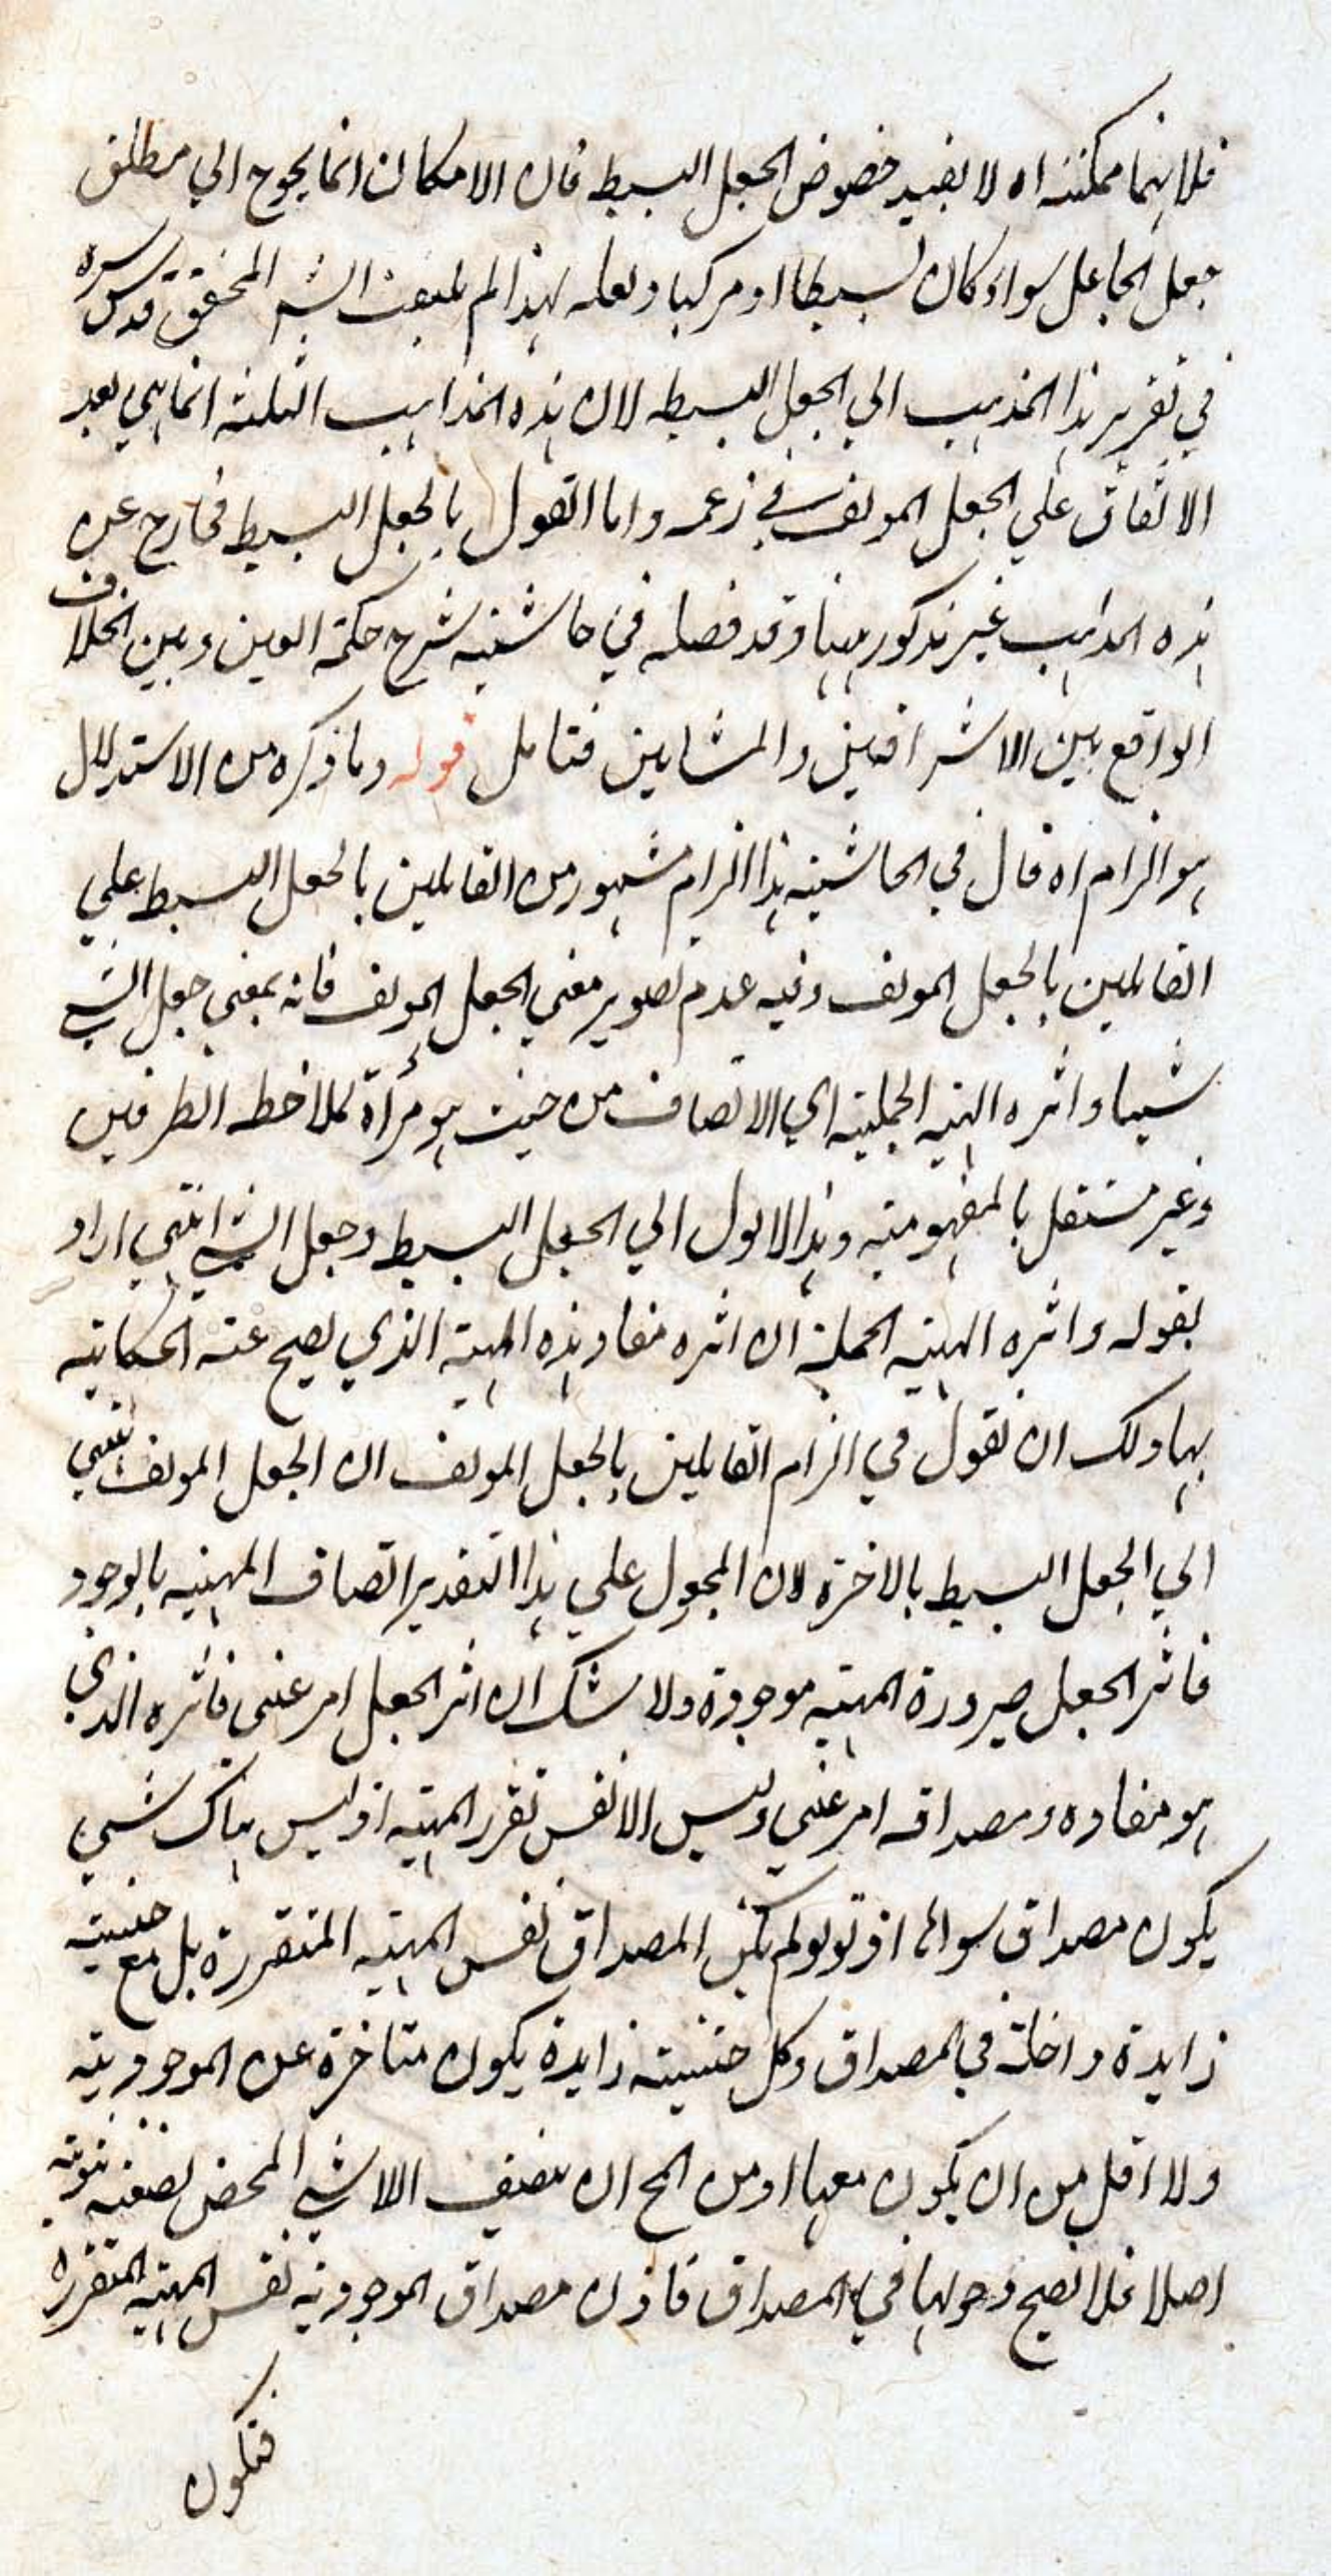 فلانهما ممكنة اه لا يفيد خصوص الجعل البسيط فان الامكان انما يحوج الي مطلق
جعل الجاعل سواء كان بسيطا او مركبا ولعله لهذا لم يلتفت الش المحقق قدس سره
في تقرير هذا المذهب الي الجعل البسيط لان هذه المذاهب الثلثة انما هي بعد
الاتفاق علي الجعل المولف في زعمه واما القول بالجعل البسيط فخارج عن
هذه المذاهب غير مذكور ههنا وقد فصله في حاشية شرح حكمة العين وبين الخلاف
الواقع بين الاشراقين والمشايين فتامل قوله وما ذكره من الاستدلال
هو الزام اه قال في الحاشية هذا الزام مشهور من القايلين بالجعل البسيط علي
القايلين بالجعل المولف وفيه عدم تصوير معني الجعل المولف فانه بمعني جعل الشي
شيئا واثره الهية الحملية اي الاتصاف من حيث هو مرأة لملاحظة الطرفين
وغير مستقل بالمفهومية وهذا لا يول الي الجعل البسيط وجعل الشي انتهي اراد
بقوله واثره الهية الحملية ان اثره مفاد هذه الهية الذي يصح عنه الحكاية
بها ولك ان تقول في الزام القايلين بالجعل المولف ان الجعل المولف ينتهي
الي الجعل البسيط بالاخرة لان المجعول علي هذا التقدير اتصاف المهية بالوجود
فاثر الجعل صيرورة المهية موجودة ولا شك ان اثر الجعل امر عيني فاثره الذي
هو مفاده ومصداقه امر عيني وليس الا نفس تقرر المهية اذ ليس هناك شي
يكون مصداق سوائها اذ لو لم يكن المصداق نفس المهية المتقررة بل مع حيثية
زايدة داخلة في المصداق وكل حيثية زايدة يكون متاخرة عن الموجودية
ولا اقل من ان يكون معها اذ من المح ان يتصف اللاشي المحض بصفة ثبوتية
اصلا فلا تصح دخولها في المصداق فاذن مصداق الموجودية نفس المهية المتقررة
فتكون